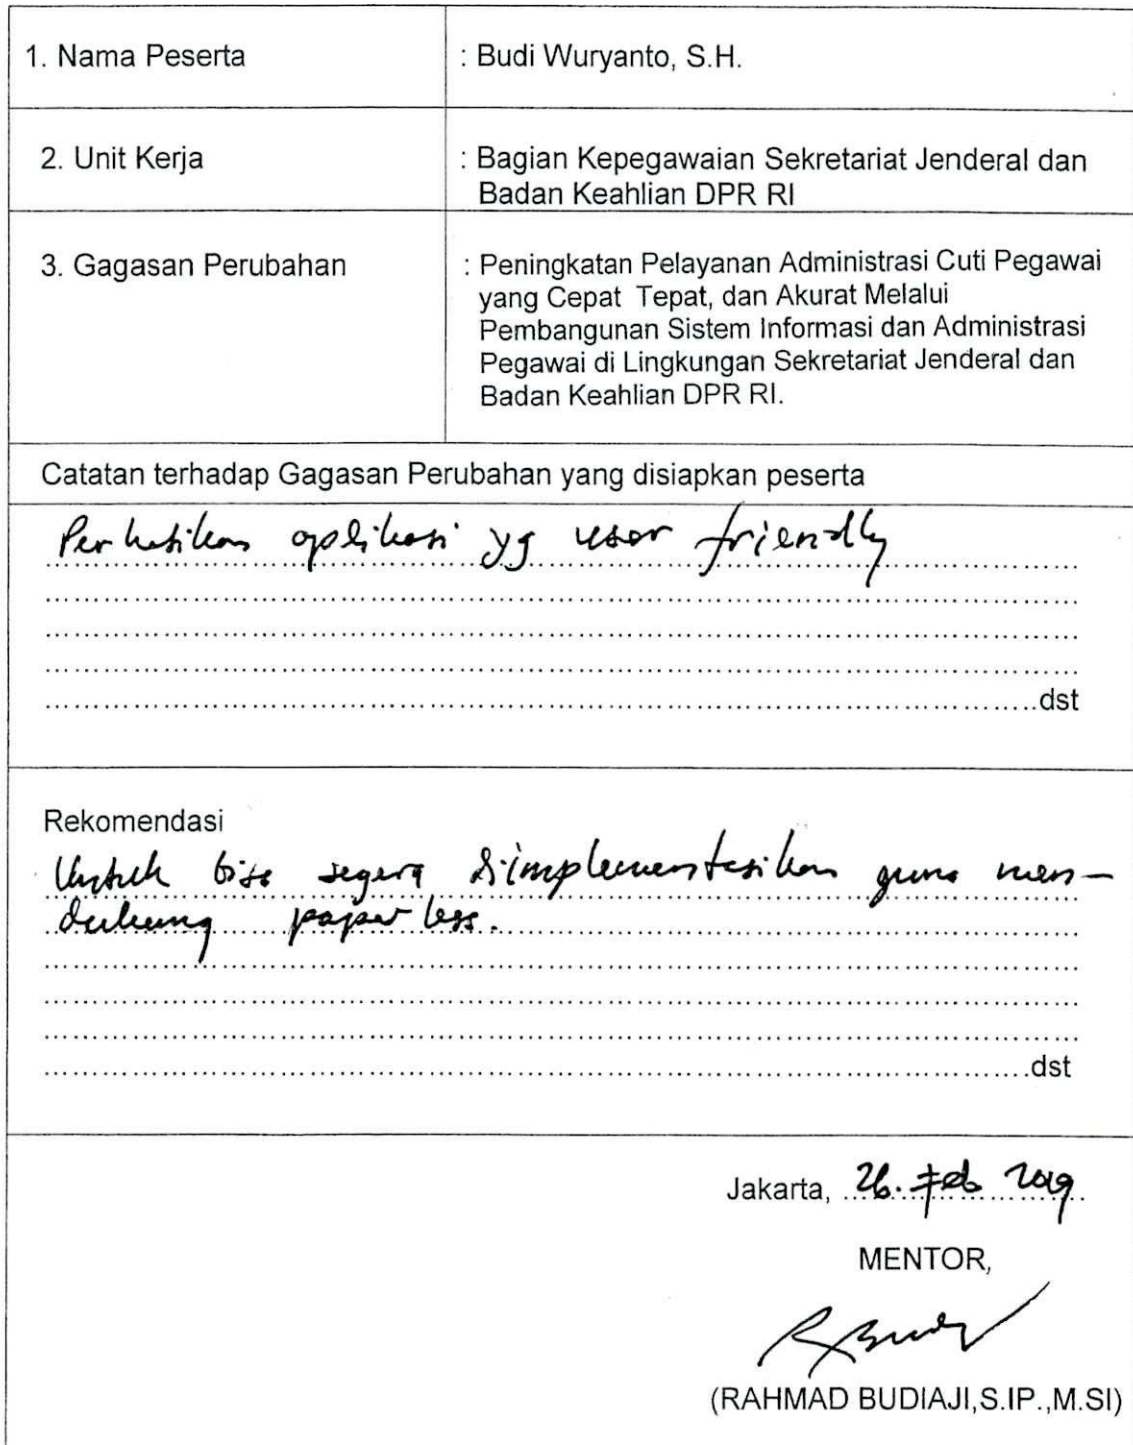 1. Nama Peserta : Budi Wuryanto, S.H.
2. Unit Kerja : Bagian Kepegawaian Sekretariat Jenderal dan
Badan Keahlian DPR RI
3. Gagasan Perubahan : Peningkatan Pelayanan Administrasi Cuti Pegawai
yang Cepat Tepat, dan Akurat Melalui
Pembangunan Sistem Informasi dan Administrasi
Pegawai di Lingkungan Sekretariat Jenderal dan
Badan Keahlian DPR RI.
Catatan terhadap Gagasan Perubahan yang disiapkan peserta
Perhatikan aplikasi yg user friendly
dst
Rekomendasi
Untuk bisa segera diimplementasikan guna men-
dukung paper less.
dst
Jakarta, 26. Feb 2019
MENTOR,
(RAHMAD BUDIAJI,S.IP.,M.SI)